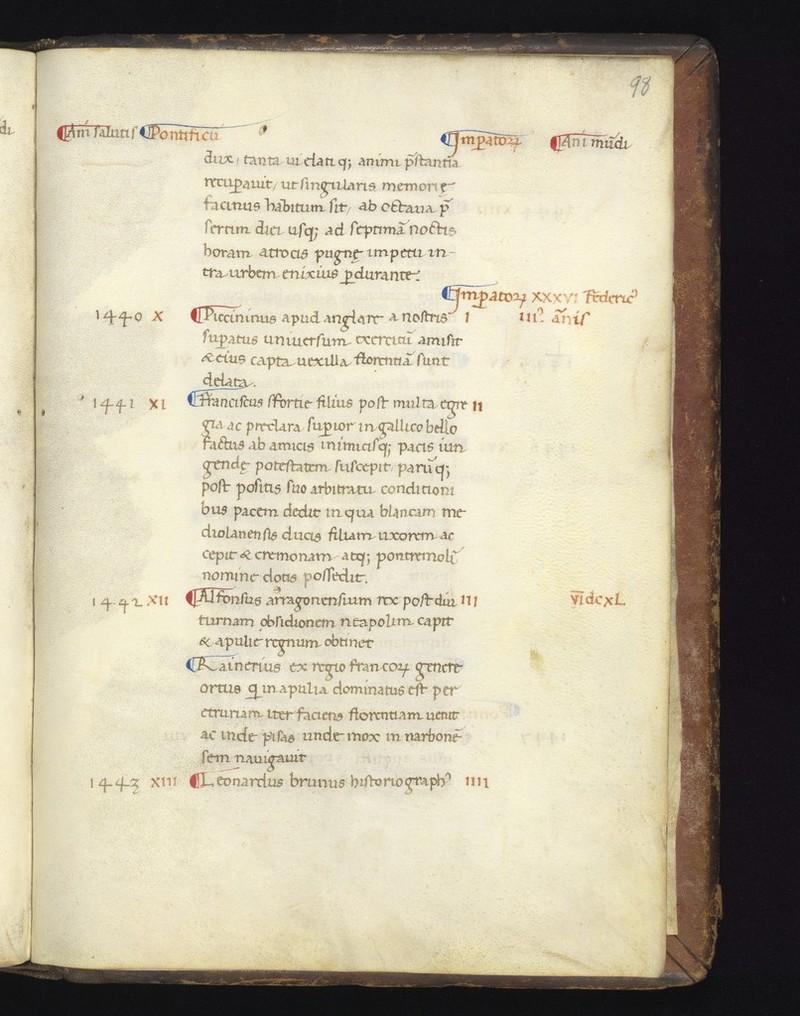 98
Añi salutis Pontificũ Imꝑatoꝝ Añi mũdi
dux, tanta ui elati q; animi p̃stantia
recuꝑauit, ut singularis memorię
facinus habitum sit, ab octaua p̃
sertim diei usq; ad septimã noctis
horam atrocis pugnę impetu in-
tra urbem enixius ꝑdurante.
Imꝑatoꝝ XXXVI Federicꝰ
1440 X Piccininus apud anglare a nostris I III? ãnis
suꝑatus uniuersum exercitũ amisit
& eius capta uexilla florentiã sunt
delata.
1441 XI Franciscus sfortie filius post multa egre II
gia ac preclara suꝑior in gallico bello
factus ab amicis inimicisq; pacis iun
gendę potestatem suscepit, parũ q;
post positis suo arbitratu conditioni
bus pacem dedit in qua blancam me
diolanensis ducis filiam uxorem ac
cepit & cremonam atq; pontremolĩ
nomine dotis possedit.
1442 XII Alfonsus arragonensium rex post diu III VĨdcXL
turnam obsidionem neapolim capit
& apulie regnum obtinet
Rainerius ex regio francoꝝ genere
ortus q̃ in apulia dominatus est per
etruriam iter faciens florentiam uenit
ac inde pisas unde mox in narbonẽ
sem nauigauit
1443 XIII Leonardus brunus historiographꝰ IIII